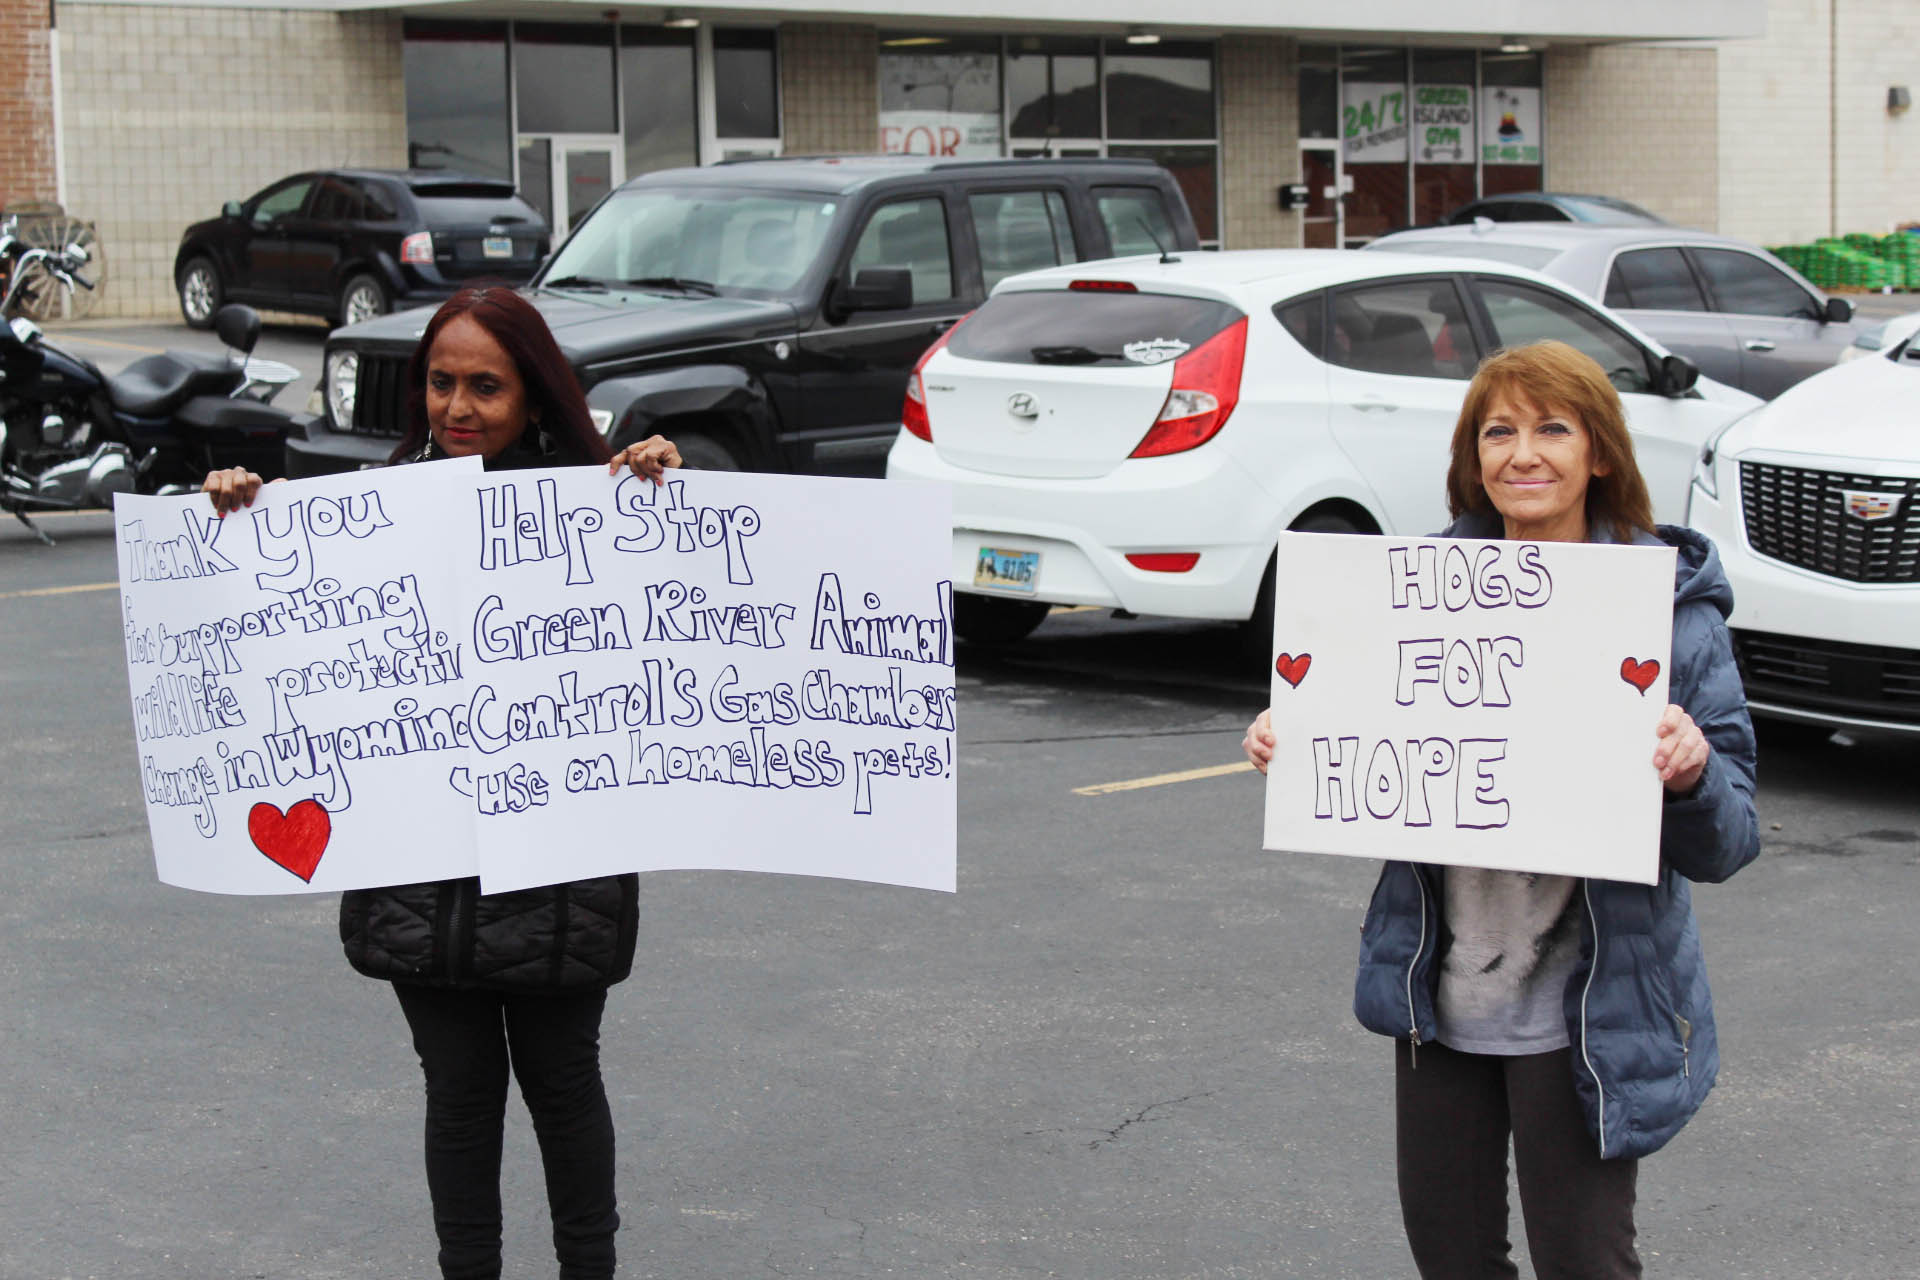 Thank you
for supporting
wildlife protecti
change in Wyoming
Help Stop
Green River Animal
Control's Gas Chamber
use on homeless pets!
HOGS
FOR
HOPE
FOR
24/7
FOR MEMBERS
GREEN
ISLAND
GYM
9205